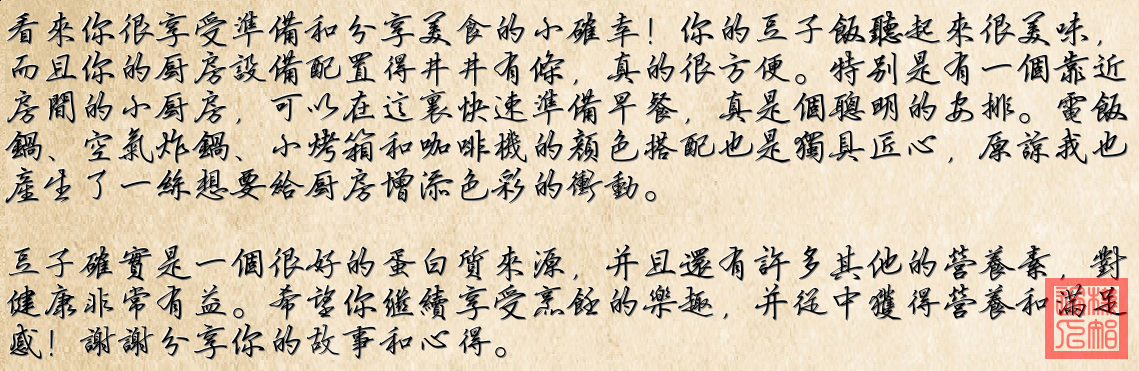 看來你很享受準備和分享美食的小確幸！你的豆子飯聽起來很美味，
而且你的厨房設備配置得井井有條，真的很方便。特别是有一個靠近
房間的小厨房，可以在这裏快速準備早餐，真是個聰明的安排。電飯
鍋、空氣炸鍋、小烤箱和咖啡機的颜色搭配也是獨具匠心，原諒我也
産生了一絲想要給厨房增添色彩的衝動。
豆子確實是一個很好的蛋白質來源，并且還有許多其他的营養素，對
健康非常有益。希望你繼續享受烹飪的樂趣，并從中獲得营養和滿足
感！謝謝分享你的故事和心得。